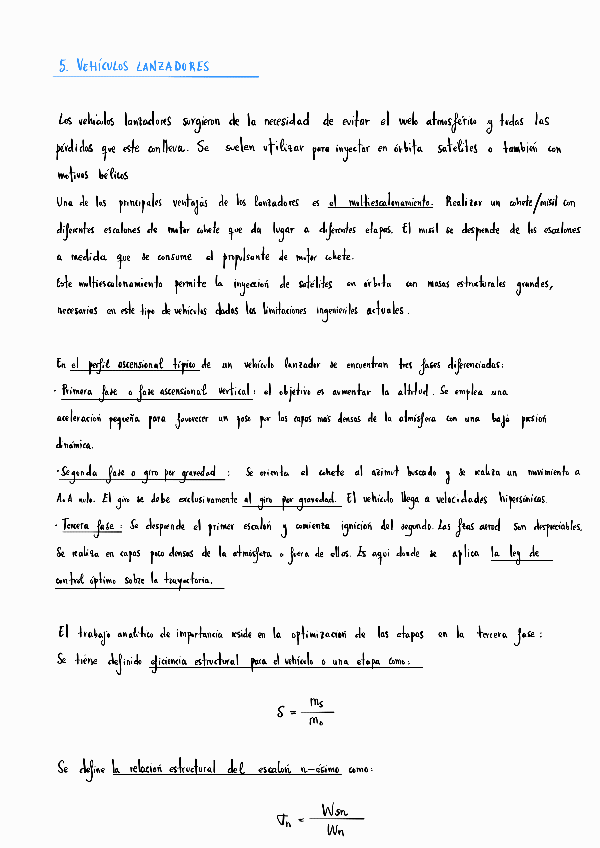 5. VEHÍCULOS LANZADORES
Los vehículos lanzadores surgieron de la necesidad de evitar el vuelo atmosférico y todas las
pérdidas que este conlleva. Se suelen utilizar para inyectar en órbita satélites o también con
motivos bélicos
Una de las principales ventajas de los lanzadores es el multiescalonamiento. Realizar un cohete/misil con
diferentes escalones de motor cohete que da lugar a diferentes etapas. El misil se desprende de los escalones
a medida que se consume el propulsante de motor cohete.
Este multiescalonamiento permite la inyección de satélites en órbita con masas estructurales grandes,
necesarias en este tipo de vehículos dadas las limitaciones ingenieriles actuales.
En el perfil ascensional típico de un vehículo lanzador se encuentran tres fases diferenciadas:
· Primera fase o fase ascensional vertical: el objetivo es aumentar la altitud. Se emplea una
aceleración pequeña para favorecer un paso por las capas más densas de la atmósfera con una baja presión
dinámica.
· Segunda fase o giro por gravedad : Se orienta el cohete al azimut buscado y se realiza un movimiento a
A.o.A nulo. El giro se debe exclusivamente al giro por gravedad. El vehículo llega a velocidades hipersónicas.
· Tercera fase: Se desprende el primer escalón y comienza ignición del segundo. Las fzas aerod son despreciables.
Se realiza en capas poco densas de la atmósfera o fuera de ellas. Es aquí donde se aplica la ley de
control óptimo sobre la trayectoria.
El trabajo analítico de importancia reside en la optimización de las etapas en la tercera fase:
Se tiene definido eficiencia estructural para el vehículo o una etapa como:
S = ms / mo
Se define la relación estructural del escalón n-ésimo como:
σn = Wsn / Wn